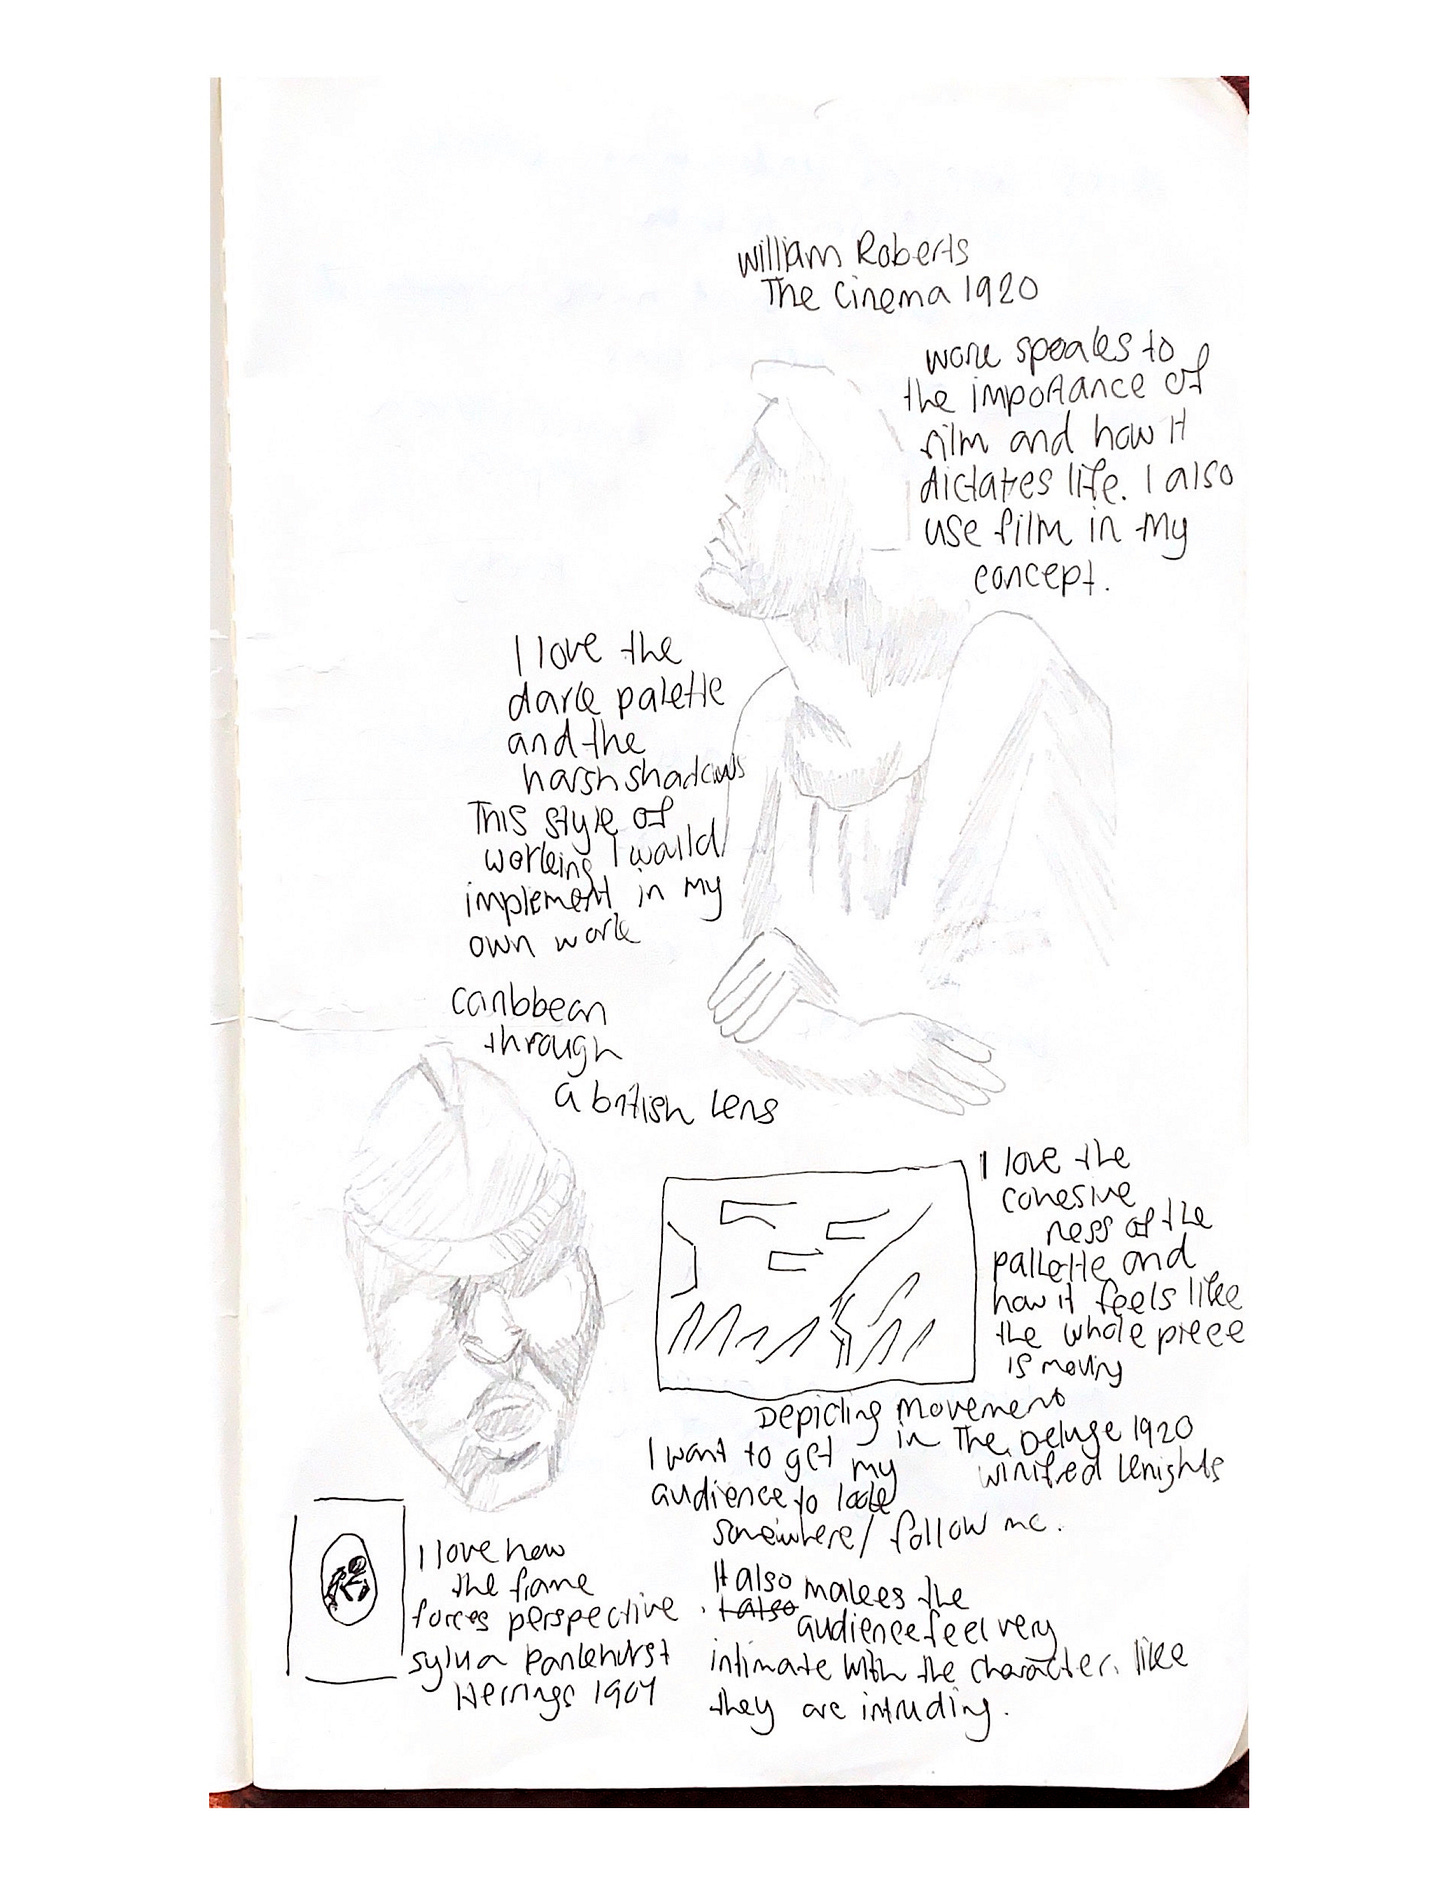 William Roberts
The Cinema 1920
work speaks to
the importance of
film and how it
dictates life. I also
use film in my
concept.
I love the
dark palette
and the
harsh shadows
This style of
working I would
implement in my
own work
caribbean
through
a british lens
I love the
cohesive
ness of the
pallette and
how it feels like
the whole piece
is moving
Depicting movement
in The Deluge 1920
winifred knights
I want to get my
audience to look
somewhere/ follow me.
I love how
the frame
forces perspective
sylvia Pankhurst
Herrings 1907
It also makes the
I also
audience feel very
intimate with the character. like
they are intruding.